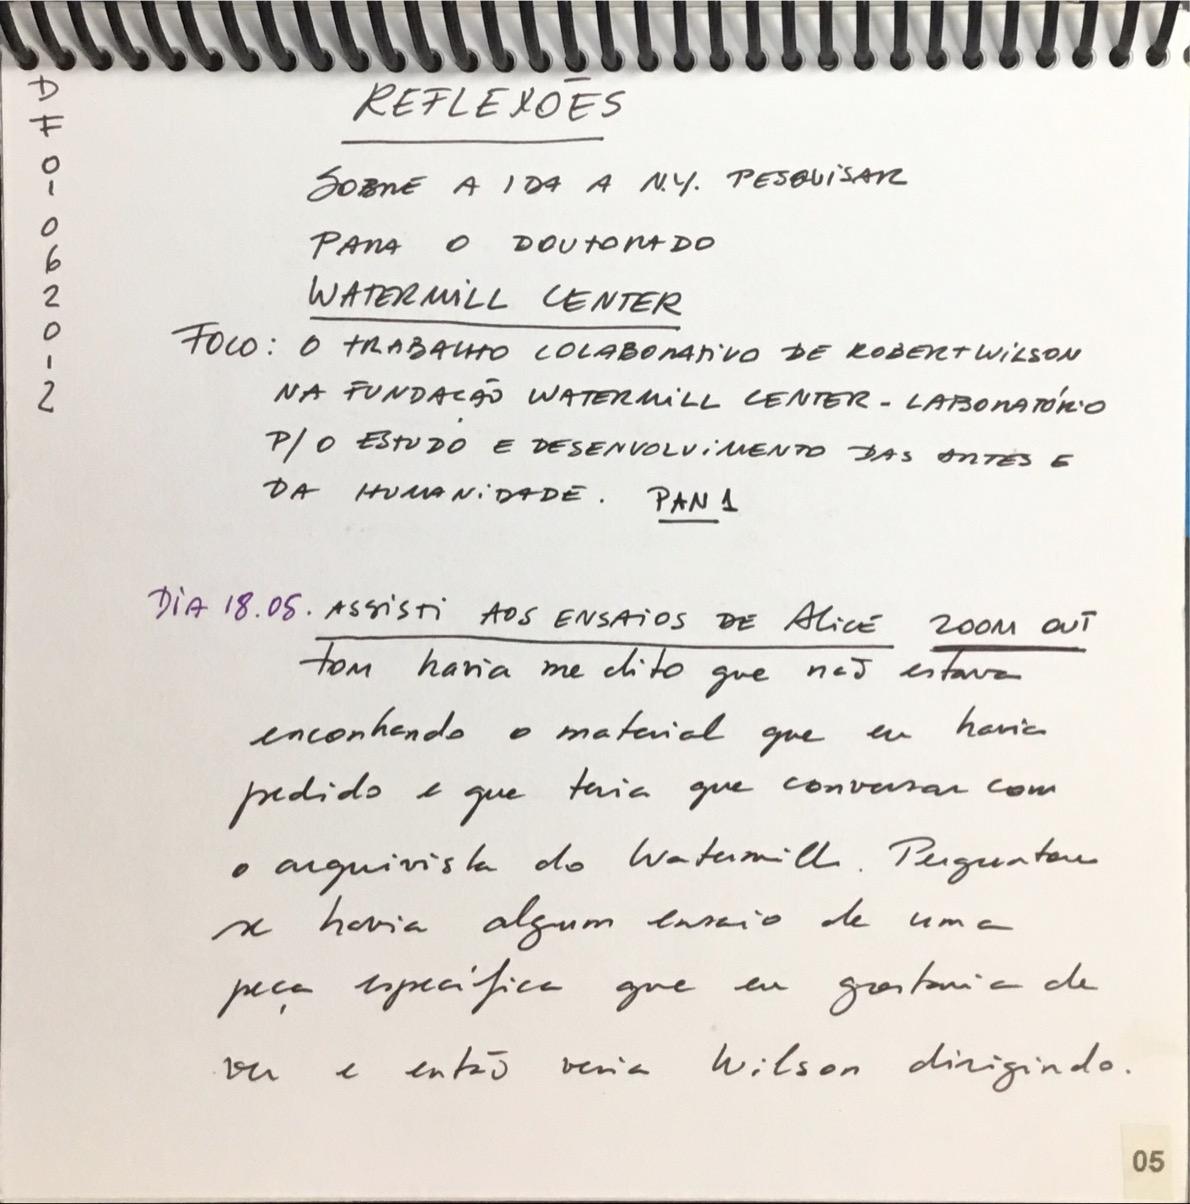 D
F
0
1
0
6
2
0
1
2
REFLEXÕES
SOBRE A IDA A N.Y. PESQUISAR
PARA O DOUTORADO
WATERMILL CENTER
FOCO: O TRABALHO COLABORATIVO DE ROBERT WILSON
NA FUNDAÇÃO WATERMILL CENTER - LABORATÓRIO
P/ O ESTUDO E DESENVOLVIMENTO DAS ARTES E
DA HUMANIDADE. PAN 1
DIA 18.05. ASSISTI AOS ENSAIOS DE ALICE ZOOM OUT
Tom havia me dito que não estava
encontrando o material que eu havia
pedido e que teria que conversar com
o arquivista do Watermill. Perguntou
se havia algum ensaio de uma
peça específica que eu gostaria de
ver e então veria Wilson dirigindo.
05